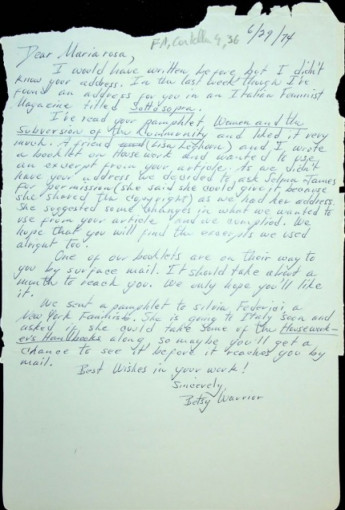 6/29/74
FA, Cartella 4, 36
Dear Mariarosa,
I would have written before but I didn't
know your address. In the last week though I've
found an address for you in an Italian Feminist
Magazine titled Sottosopra.
I've read your pamphlet Women and the
Subversion of the Community and liked it very
much. A friend (Lisa Leghorn) and I, wrote
a booklet on Housework and wanted to use
an exerpt from your article. As we didn't
have your address we decided to ask Selma James
for permission (she said she could give it because
she shared the copyright) as we had her address.
She suggested some changes in what we wanted to
use from your article and we complied. We
hope that you will find the excerpts we used
alright too.
One of our booklets are on their way to
you by surface mail. It should take about a
month to reach you. We only hope you'll like
it.
We sent a pamphlet to Silvia Federici a
New York Feminist. She is going to Italy soon and
asked if she could take some of the Housework-
er's Handbooks along, so maybe you'll get a
chance to see it before it reaches you by
mail.
Best Wishes in your work!
Sincerely,
Betsy Warrior